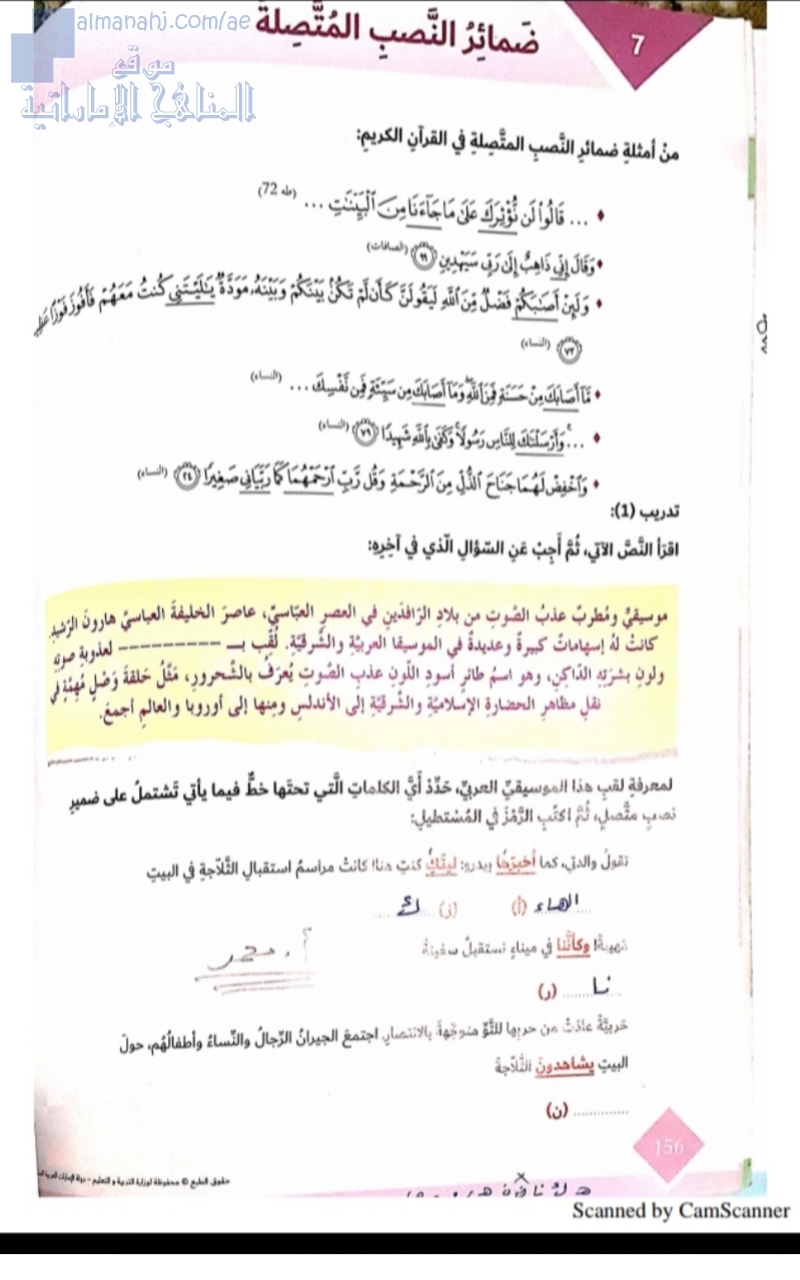 almanahj.com/ae
موقع
المناهج الإماراتية
7
ضَمائِرُ النَّصبِ المُتَّصِلة
منْ أمثلةِ ضمائرِ النَّصبِ المتَّصلةِ في القرآنِ الكريمِ:
♦ ... قَالُوا۟ لَن نُّؤْثِرَكَ عَلَىٰ مَا جَآءَنَا مِنَ ٱلْبَيِّنَـٰتِ ... (طه 72)
♦ وَقَالَ إِنِّى ذَاهِبٌ إِلَىٰ رَبِّى سَيَهْدِينِ ٩٩ (الصافات)
♦ وَلَئِنْ أَصَـٰبَكُمْ فَضْلٌ مِّنَ ٱللَّهِ لَيَقُولَنَّ كَأَن لَّمْ تَكُنۢ بَيْنَكُمْ وَبَيْنَهُۥ مَوَدَّةٌ يَـٰلَيْتَنِى كُنتُ مَعَهُمْ فَأَفُوزَ فَوْزًا
٧٣ (النساء)
♦ مَّآ أَصَابَكَ مِنْ حَسَنَةٍ فَمِنَ ٱللَّهِ وَمَآ أَصَابَكَ مِن سَيِّئَةٍ فَمِن نَّفْسِكَ ... (النساء)
♦ ... وَأَرْسَلْنَـٰكَ لِلنَّاسِ رَسُولًا وَكَفَىٰ بِٱللَّهِ شَهِيدًا ٧٩ (النساء)
♦ وَٱخْفِضْ لَهُمَا جَنَاحَ ٱلذُّلِّ مِنَ ٱلرَّحْمَةِ وَقُل رَّبِّ ٱرْحَمْهُمَا كَمَا رَبَّيَانِى صَغِيرًا ٢٤ (النساء)
تدريب (1):
اقرَأ النَّصَّ الآتي، ثُمَّ أَجِبْ عَنِ السّؤالِ الّذي في آخِرِهِ:
موسيقيٌّ ومُطربٌ عذبُ الصَّوتِ من بلادِ الرّافدَينِ في العصرِ العبّاسيِّ، عاصرَ الخليفةَ العباسيَّ هارونَ الرّشيدِ.
كانتْ لهُ إسهاماتٌ كبيرةٌ وعديدةٌ في الموسيقا العربيَّةِ والشَّرقيَّةِ. لُقِّب بـــ ---------- لعذوبةِ صوتِهِ
ولونِ بشرَتِهِ الدّاكِنِ، وهو اسمُ طائرٍ أسودِ اللَّونِ عذبِ الصَّوتِ يُعرَفُ بالشُّحرورِ، مَثَّلَ حَلقةَ وَصْلٍ مُهِمَّةٍ في
نقلِ مظاهرِ الحضارةِ الإسلاميَّةِ والشَّرقيَّةِ إلى الأندلسِ ومنها إلى أوروبا والعالمِ أجمعَ.
لمعرفةِ لقبِ هذا الموسيقيِّ العربيِّ، حَدِّدْ أَيَّ الكلماتِ الَّتي تحتَها خطٌّ فيما يأتي تَشتملُ على ضميرِ
نصبٍ متَّصلٍ، ثُمَّ اكتُبِ الرَّمْزَ في المُسْتطيلِ:
تقولُ والدتي، كما أخبرَها بيدرو: ليتَكِ كنتِ هنا! كانتْ مراسمُ استقبالِ الثَّلّاجةِ في البيتِ
الهاء (أ) (ز) ك
مهيبةً! وكأنَّنا في ميناءٍ نستقبلُ سفينةً
نا (ر)
حَربيَّةً عادَتْ من حربِها للتَّوِّ متوَّجةً بالانتصارِ. اجتمعَ الجيرانُ الرِّجالُ والنِّساءُ وأطفالُهُم، حولَ
البيتِ يشاهدونَ الثّلّاجةَ
(ن)
156
حقوق الطبع © محفوظة لوزارة التربية و التعليم – دولة الإمارات العربية
Scanned by CamScanner